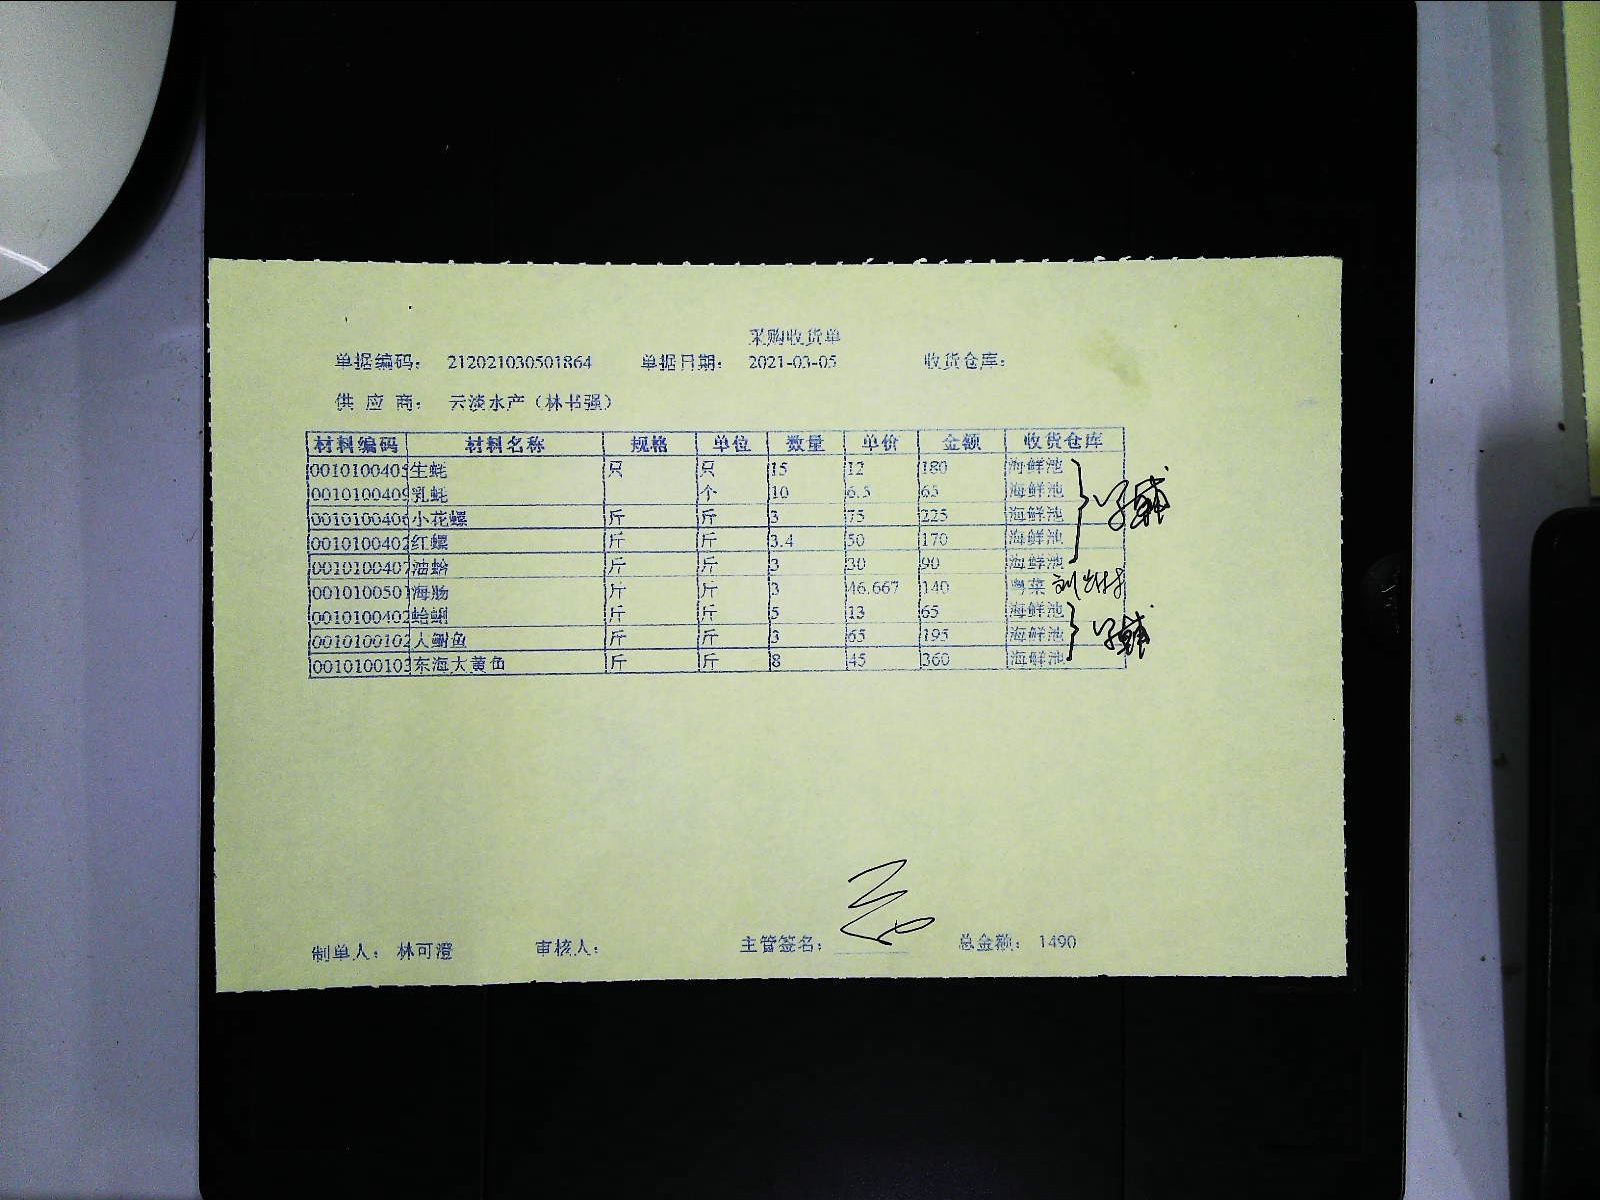 采购收货单
单据编码： 212021030501864 单据日期： 2021-03-05 收货仓库：
供 应 商： 云淡水产（林书强）
材料编码 材料名称 规格 单位 数量 单价 金额 收货仓库
0010100405 生蚝 只 只 15 12 180 海鲜池
0010100409 乳蚝 个 10 6.5 65 海鲜池
0010100406 小花螺 斤 斤 3 75 225 海鲜池
0010100402 红螺 斤 斤 3.4 50 170 海鲜池
0010100407 油蛤 斤 斤 3 30 90 海鲜池
0010100501 海肠 斤 斤 3 46.667 140 粤菜
0010100402 蛤蜊 斤 斤 5 13 65 海鲜池
0010100102 斤 斤 3 65 195 海鲜池
0010100103 东海大黄鱼 斤 斤 8 45 360 海鲜池
制单人： 林可澄 审核人： 主管签名： 总金额： 1490